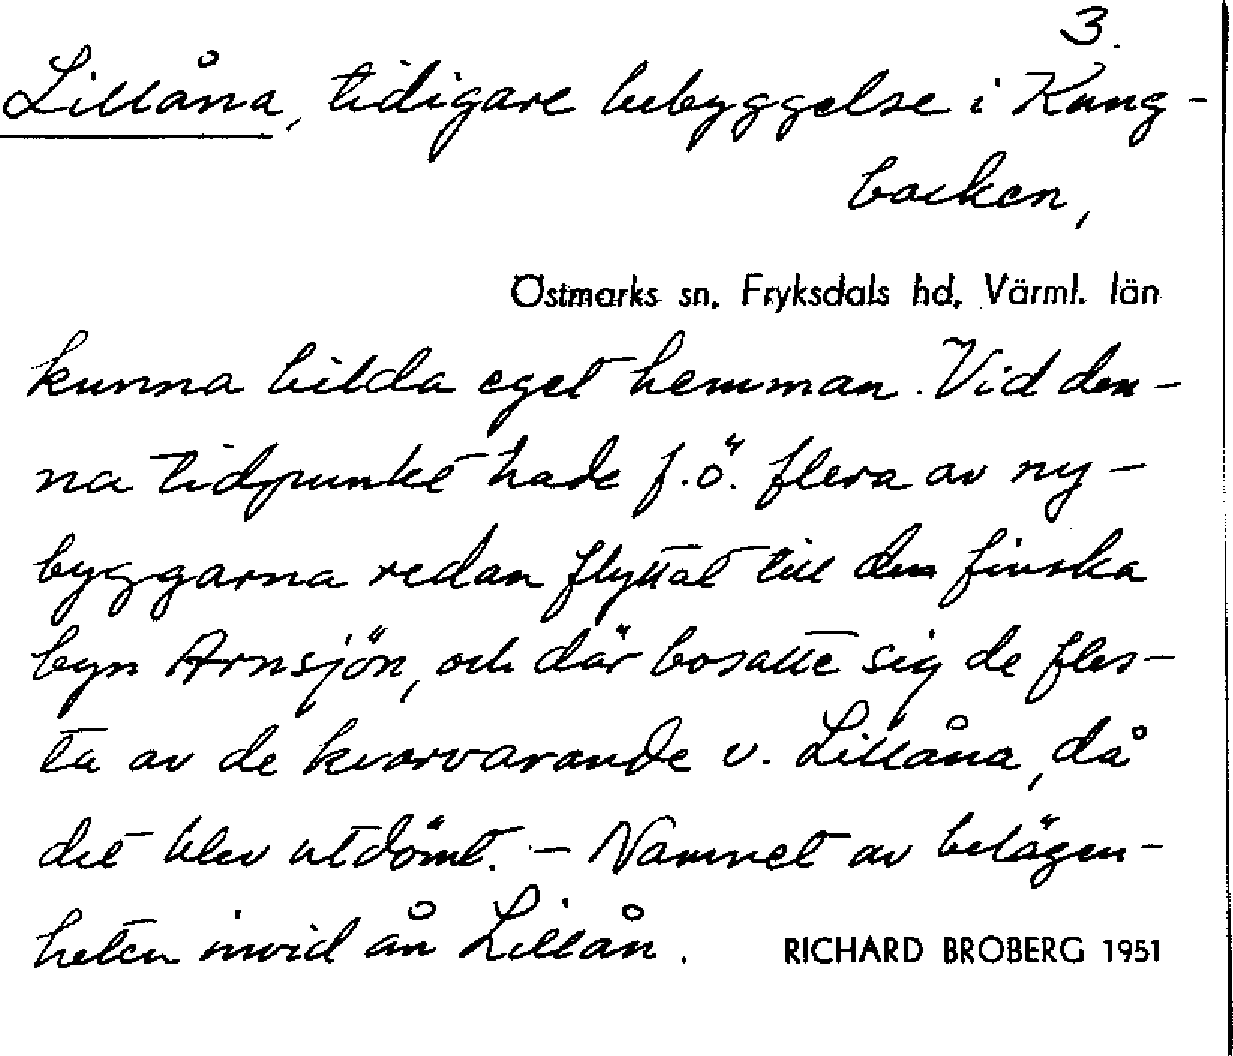 3.
Lillåna, tidigare bebyggelse i Kung-
backen,
Östmarks sn, Fryksdals hd, Värml. län
kunna bilda eget hemman. Vid den-
na tidpunkt hade f.ö. flera av ny-
byggarna redan flyttat till den finska
byn Arnsjön, och där bosatte sig de fles-
ta av de kvarvarande v. Lillåna, då
det blev utdömt. - Namnet av belägen-
heten invid ån Lillån.
RICHARD BROBERG 1951